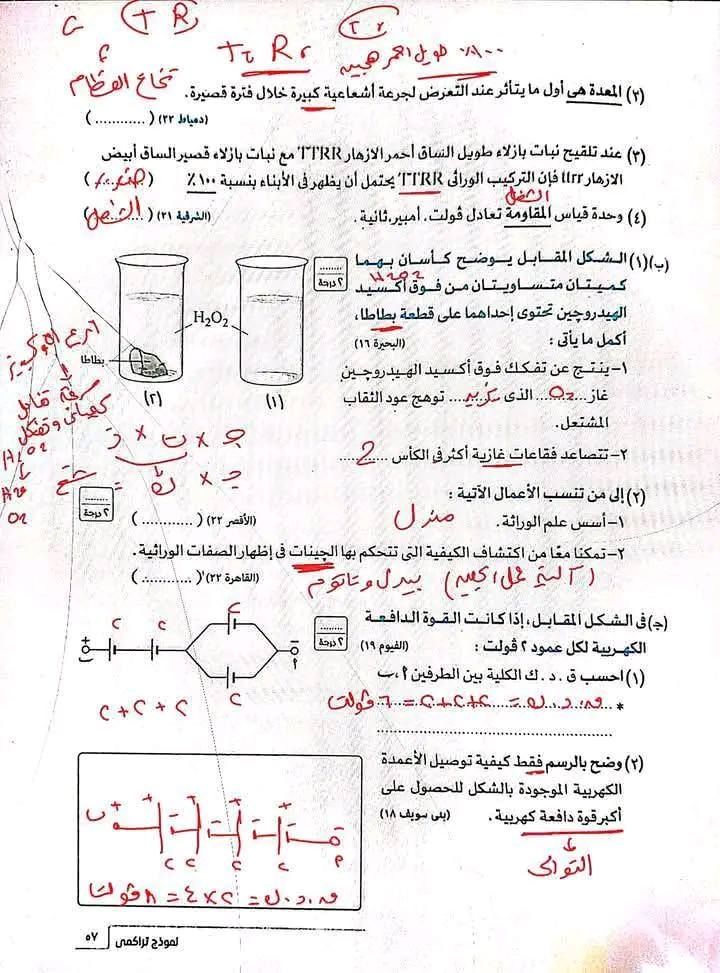 T R
T r
Tt Rr
١٠٠٪ طويل احمر هجينه
نخاع العظام
(٢) المعدة هى أول ما يتأثر عند التعرض لجرعة أشعاعية كبيرة خلال فترة قصيرة.
(دمياط ٢٢) (............)
(٣) عند تلقيح نبات بازلاء طويل الساق أحمر الازهار TTRR مع نبات بازلاء قصير الساق أبيض
الازهار ttrr فإن التركيب الوراثى TTRR يحتمل أن يظهر فى الأبناء بنسبة ١٠٠٪ (صفر٪)
الشغل
(٤) وحدة قياس المقاومة تعادل ڤولت. أمبير.ثانية. (الشرقية ٢١) (الشغل)
(ب)(١) الشكل المقابل يوضح كأسان بهما
H2O2
كميتان متساويتان من فوق أكسيد
الهيدروچين تحتوى إحداهما على قطعة بطاطا،
أكمل ما يأتى : (البحيرة ١٦)
٢ درجة
H₂O₂
بطاطا
(٢) (١)
١- ينتج عن تفكك فوق أكسيد الهيدروچين
غاز O2 الذى يزيد توهج عود الثقاب
المشتعل.
٢- تتصاعد فقاعات غازية أكثر فى الكأس 2
H2O2
H2O
O2
جـ × ت × ز
جـ × ك =
(٢) إلى من تنسب الأعمال الآتية :
٢ درجة
١- أسس علم الوراثة. مندل (الأقصر ٢٢) (............)
٢- تمكنا معًا من اكتشاف الكيفية التى تتحكم بها الچينات فى إظهار الصفات الوراثية.
(آلية عمل الجين) بيدل وتاتوم (القاهرة ٢٢) (............)
(جـ) فى الشكل المقابل، إذا كانت القوة الدافعة
الكهربية لكل عمود ٢ ڤولت : (الفيوم ١٩)
٢ درجة
٢ ٢ ٢
+ ب − أ
٢
٢ + ٢ + ٢
(١) احسب ق. د. ك الكلية بين الطرفين أ، ب
* ق.د.ك = ٢+٢+٢ = ٦ ڤولت
(٢) وضح بالرسم فقط كيفية توصيل الأعمدة
الكهربية الموجودة بالشكل للحصول على
أكبر قوة دافعة كهربية. (بنى سويف ١٨)
التوالى
ب + + + + +
٢ ٢ ٢ ٢ أ
ق.د.ك = ٢×٤ = ٨ ڤولت
نموذج تراكمى ٥٧